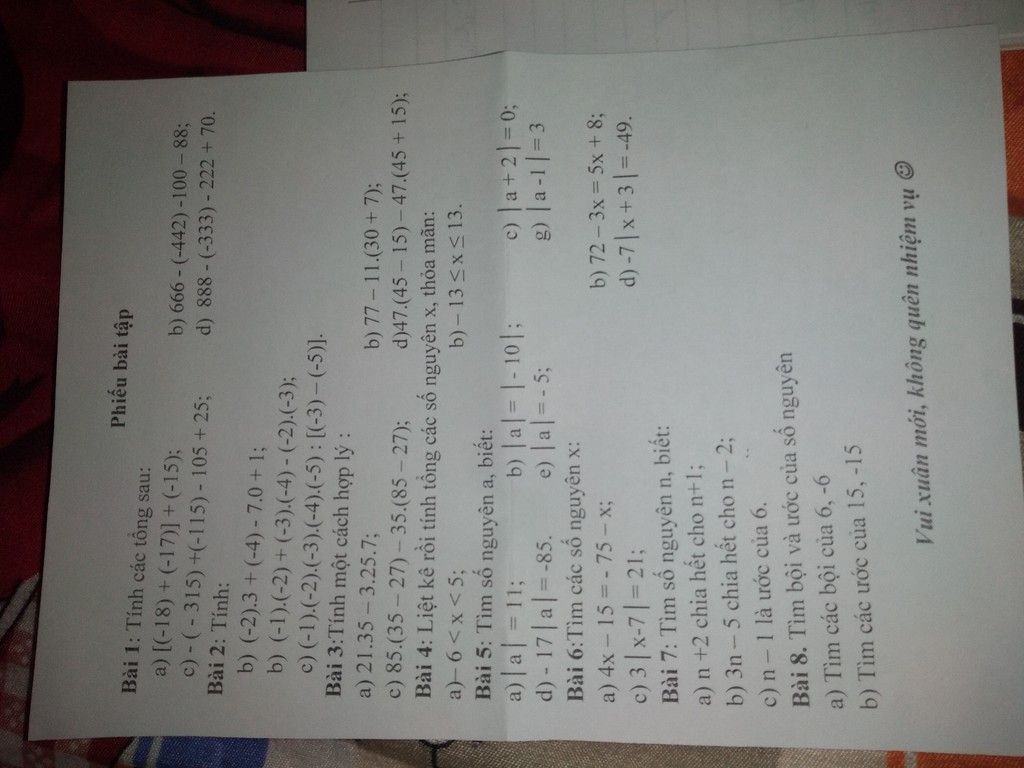 Phiếu bài tập
Bài 1: Tính các tổng sau:
a) [(-18) + (-17)] + (-15); b) 666 - (-442) -100 – 88;
c) - ( - 315) +(-115) - 105 + 25; d) 888 - (-333) - 222 + 70.
Bài 2: Tính:
b) (-2).3 + (-4) - 7.0 + 1;
b) (-1).(-2) + (-3).(-4) - (-2).(-3);
c) (-1).(-2).(-3).(-4).(-5) : [(-3) – (-5)].
Bài 3:Tính một cách hợp lý :
a) 21.35 – 3.25.7; b) 77 – 11.(30 + 7);
c) 85.(35 – 27) – 35.(85 – 27); d)47.(45 – 15) – 47.(45 + 15);
Bài 4: Liệt kê rồi tính tổng các số nguyên x, thỏa mãn:
a)– 6 < x < 5; b) – 13 ≤ x ≤ 13.
Bài 5: Tìm số nguyên a, biết:
a) | a | = 11; b) | a | = | - 10 | ; c) | a + 2 | = 0;
d) - 17 | a | = -85. e) | a | = - 5; g) | a -1 | = 3
Bài 6:Tìm các số nguyên x:
a) 4x – 15 = - 75 – x; b) 72 – 3x = 5x + 8;
c) 3 | x-7 | = 21; d) -7 | x + 3 | = -49.
Bài 7: Tìm số nguyên n, biết:
a) n +2 chia hết cho n+1;
b) 3n – 5 chia hết cho n – 2;
c) n – 1 là ước của 6.
Bài 8. Tìm bội và ước của số nguyên
a) Tìm các bội của 6, -6
b) Tìm các ước của 15, -15
Vui xuân mới, không quên nhiệm vụ ☺